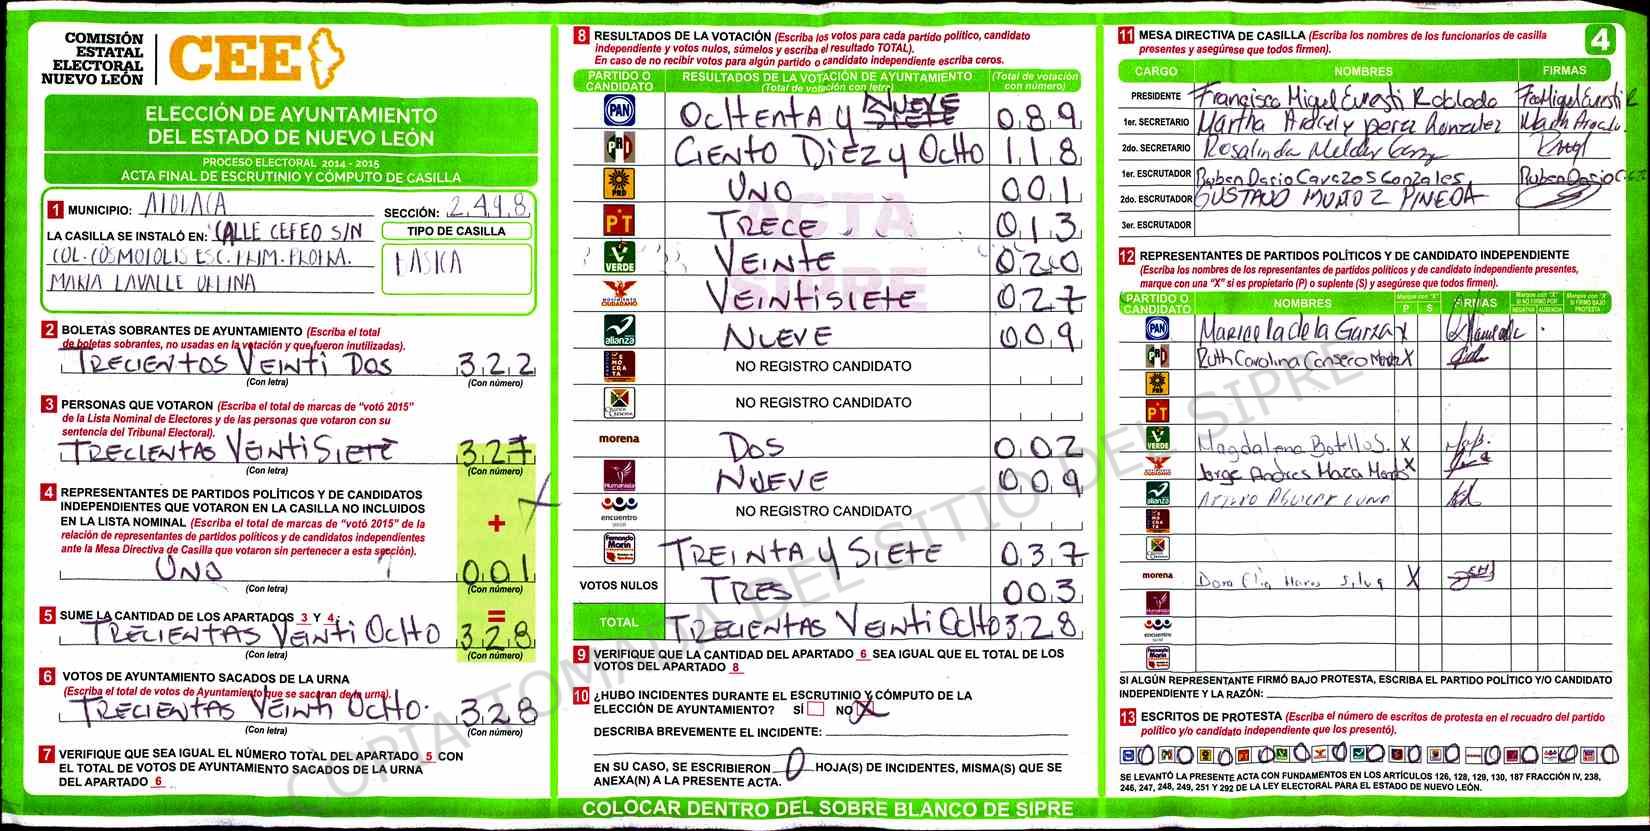 COMISIÓN
ESTATAL
ELECTORAL
NUEVO LEÓN
CEE
ELECCIÓN DE AYUNTAMIENTO
DEL ESTADO DE NUEVO LEÓN
PROCESO ELECTORAL 2014 - 2015
ACTA FINAL DE ESCRUTINIO Y CÓMPUTO DE CASILLA
1 MUNICIPIO:
SECCIÓN: 2,4,9,8
LA CASILLA SE INSTALÓ EN: CALLE CEFEO S/N
TIPO DE CASILLA
MARIA LAVALLE
2 BOLETAS SOBRANTES DE AYUNTAMIENTO (Escriba el total
de boletas sobrantes, no usadas en la votación y que fueron inutilizadas).
TRECIENTOS VEINTI DOS 3,2,2
(Con letra) (Con número)
3 PERSONAS QUE VOTARON (Escriba el total de marcas de "votó 2015"
de la Lista Nominal de Electores y de las personas que votaron con su
sentencia del Tribunal Electoral).
TRECIENTAS VEINTI SIETE 3,2,7
(Con letra) (Con número)
4 REPRESENTANTES DE PARTIDOS POLÍTICOS Y DE CANDIDATOS
INDEPENDIENTES QUE VOTARON EN LA CASILLA NO INCLUIDOS
EN LA LISTA NOMINAL (Escriba el total de marcas de "votó 2015" de la
relación de representantes de partidos políticos y de candidatos independientes
ante la Mesa Directiva de Casilla que votaron sin pertenecer a esta sección).
+
UNO 0,0,1
(Con letra) (Con número)
=
5 SUME LA CANTIDAD DE LOS APARTADOS 3 Y 4:
TRECIENTAS VEINTI OCHO 3,2,8
(Con letra) (Con número)
6 VOTOS DE AYUNTAMIENTO SACADOS DE LA URNA
(Escriba el total de votos de Ayuntamiento que se sacaron de la urna).
TRECIENTAS VEINTI OCHO. 3,2,8
(Con letra) (Con número)
7 VERIFIQUE QUE SEA IGUAL EL NÚMERO TOTAL DEL APARTADO 5 CON
EL TOTAL DE VOTOS DE AYUNTAMIENTO SACADOS DE LA URNA
DEL APARTADO 6
8 RESULTADOS DE LA VOTACIÓN (Escriba los votos para cada partido político, candidato
independiente y votos nulos, súmelos y escriba el resultado TOTAL).
En caso de no recibir votos para algún partido o candidato independiente escriba ceros.
PARTIDO O CANDIDATO
RESULTADOS DE LA VOTACIÓN DE AYUNTAMIENTO
(Total de votación con letra)
(Total de votación con número)
PAN OCHENTA Y NUEVE 0,8,9
PRD CIENTO DIEZ Y OCHO 1,1,8
PRD UNO 0,0,1
PT TRECE 0,1,3
VERDE VEINTE 0,2,0
MOVIMIENTO CIUDADANO VEINTISIETE 0,2,7
alianza NUEVE 0,0,9
NO REGISTRO CANDIDATO
NO REGISTRO CANDIDATO
morena DOS 0,0,2
Humanista NUEVE 0,0,9
encuentro social NO REGISTRO CANDIDATO
Fernando Marín TREINTA Y SIETE 0,3,7
VOTOS NULOS TRES 0,0,3
TOTAL TRECIENTAS VEINTI OCHO 3,2,8
ACTA
SIPRE
9 VERIFIQUE QUE LA CANTIDAD DEL APARTADO 6 SEA IGUAL QUE EL TOTAL DE LOS
VOTOS DEL APARTADO 8
10 ¿HUBO INCIDENTES DURANTE EL ESCRUTINIO Y CÓMPUTO DE LA
ELECCIÓN DE AYUNTAMIENTO? SÍ NO X
DESCRIBA BREVEMENTE EL INCIDENTE:
EN SU CASO, SE ESCRIBIERON 0 HOJA(S) DE INCIDENTES, MISMA(S) QUE SE
ANEXA(N) A LA PRESENTE ACTA.
COLOCAR DENTRO DEL SOBRE BLANCO DE SIPRE
COPIA TOMADA DEL SITIO DEL SIPRE
11 MESA DIRECTIVA DE CASILLA (Escriba los nombres de los funcionarios de casilla
presentes y asegúrese que todos firmen).
4
CARGO NOMBRES FIRMAS
PRESIDENTE Francisco Miguel Euresti Robledo
1er. SECRETARIO Martha Aracely perez Gonzalez
2do. SECRETARIO Rosalinda
1er. ESCRUTADOR Ruben Dario Cavazos Gonzales
2do. ESCRUTADOR GUSTAVO MUÑOZ PINEDA
3er. ESCRUTADOR
12 REPRESENTANTES DE PARTIDOS POLÍTICOS Y DE CANDIDATO INDEPENDIENTE
(Escriba los nombres de los representantes de partidos políticos y de candidato independiente presentes,
marque con una "X" si es propietario (P) o suplente (S) y asegúrese que todos firmen).
PARTIDO O CANDIDATO
NOMBRES
Marque con "X"
P S
FIRMAS
Marque con "X" SI NO FIRMÓ POR
NEGATIVA AUSENCIA
Marque con "X" SI FIRMÓ BAJO PROTESTA
PAN Maricela de la Garza X
Ruth Carolina X
PRD
PT
VERDE Magdalena X
Jorge Andres X
alianza Arturo Aguilar Luna
morena X
Humanista
encuentro social
Fernando Marín
SI ALGÚN REPRESENTANTE FIRMÓ BAJO PROTESTA, ESCRIBA EL PARTIDO POLÍTICO Y/O CANDIDATO
INDEPENDIENTE Y LA RAZÓN:
13 ESCRITOS DE PROTESTA (Escriba el número de escritos de protesta en el recuadro del partido
político y/o candidato independiente que los presentó).
0 0 0 0 0 0 0 0 0 0 0 0 0
SE LEVANTÓ LA PRESENTE ACTA CON FUNDAMENTOS EN LOS ARTÍCULOS 126, 128, 129, 130, 187 FRACCIÓN IV, 238,
246, 247, 248, 249, 251 Y 292 DE LA LEY ELECTORAL PARA EL ESTADO DE NUEVO LEÓN.